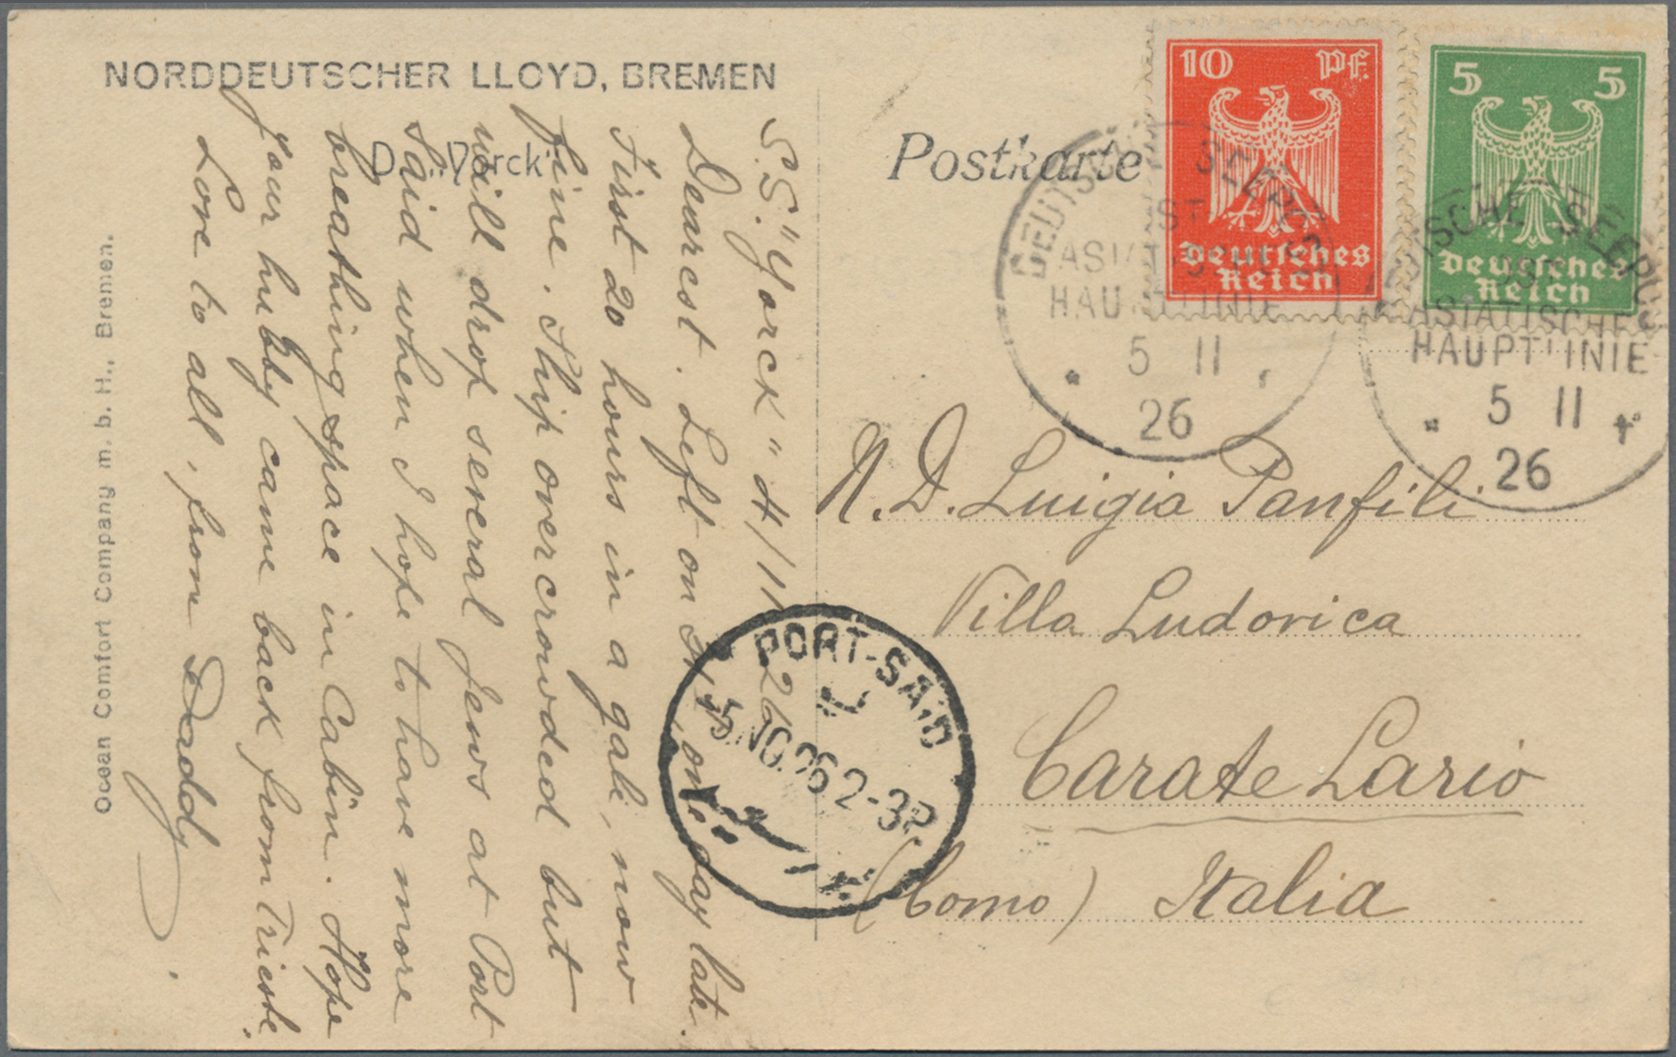 NORDDEUTSCHER LLOYD, BREMEN
D. „Yorck“
Postkarte
10 Pf.
Deutsches
Reich
5 5
Deutsches
Reich
DEUTSCHE SEEPOST
OST
ASIATISCHE
HAUPTLINIE
5 11
26
DEUTSCHE SEEPOST
OST
ASIATISCHE
HAUPTLINIE
5 11
26
S.S. "Yorck" 4/11 26
Dearest. Left on 31, one day late.
First 20 hours in a gale, now
fine. Ship overcrowded but
will drop several Jews at Port
Said when I hope to have more
breathing space in Cabin. Hope
your hubby came back from Trieste.
Love to all, from Daddy.
N. D. Luigia Panfili
Villa Ludovica
Carate Lario
(Como) Italia
PORT-SAID
5 NO. 26 2-3P
Ocean Comfort Company m. b. H., Bremen.